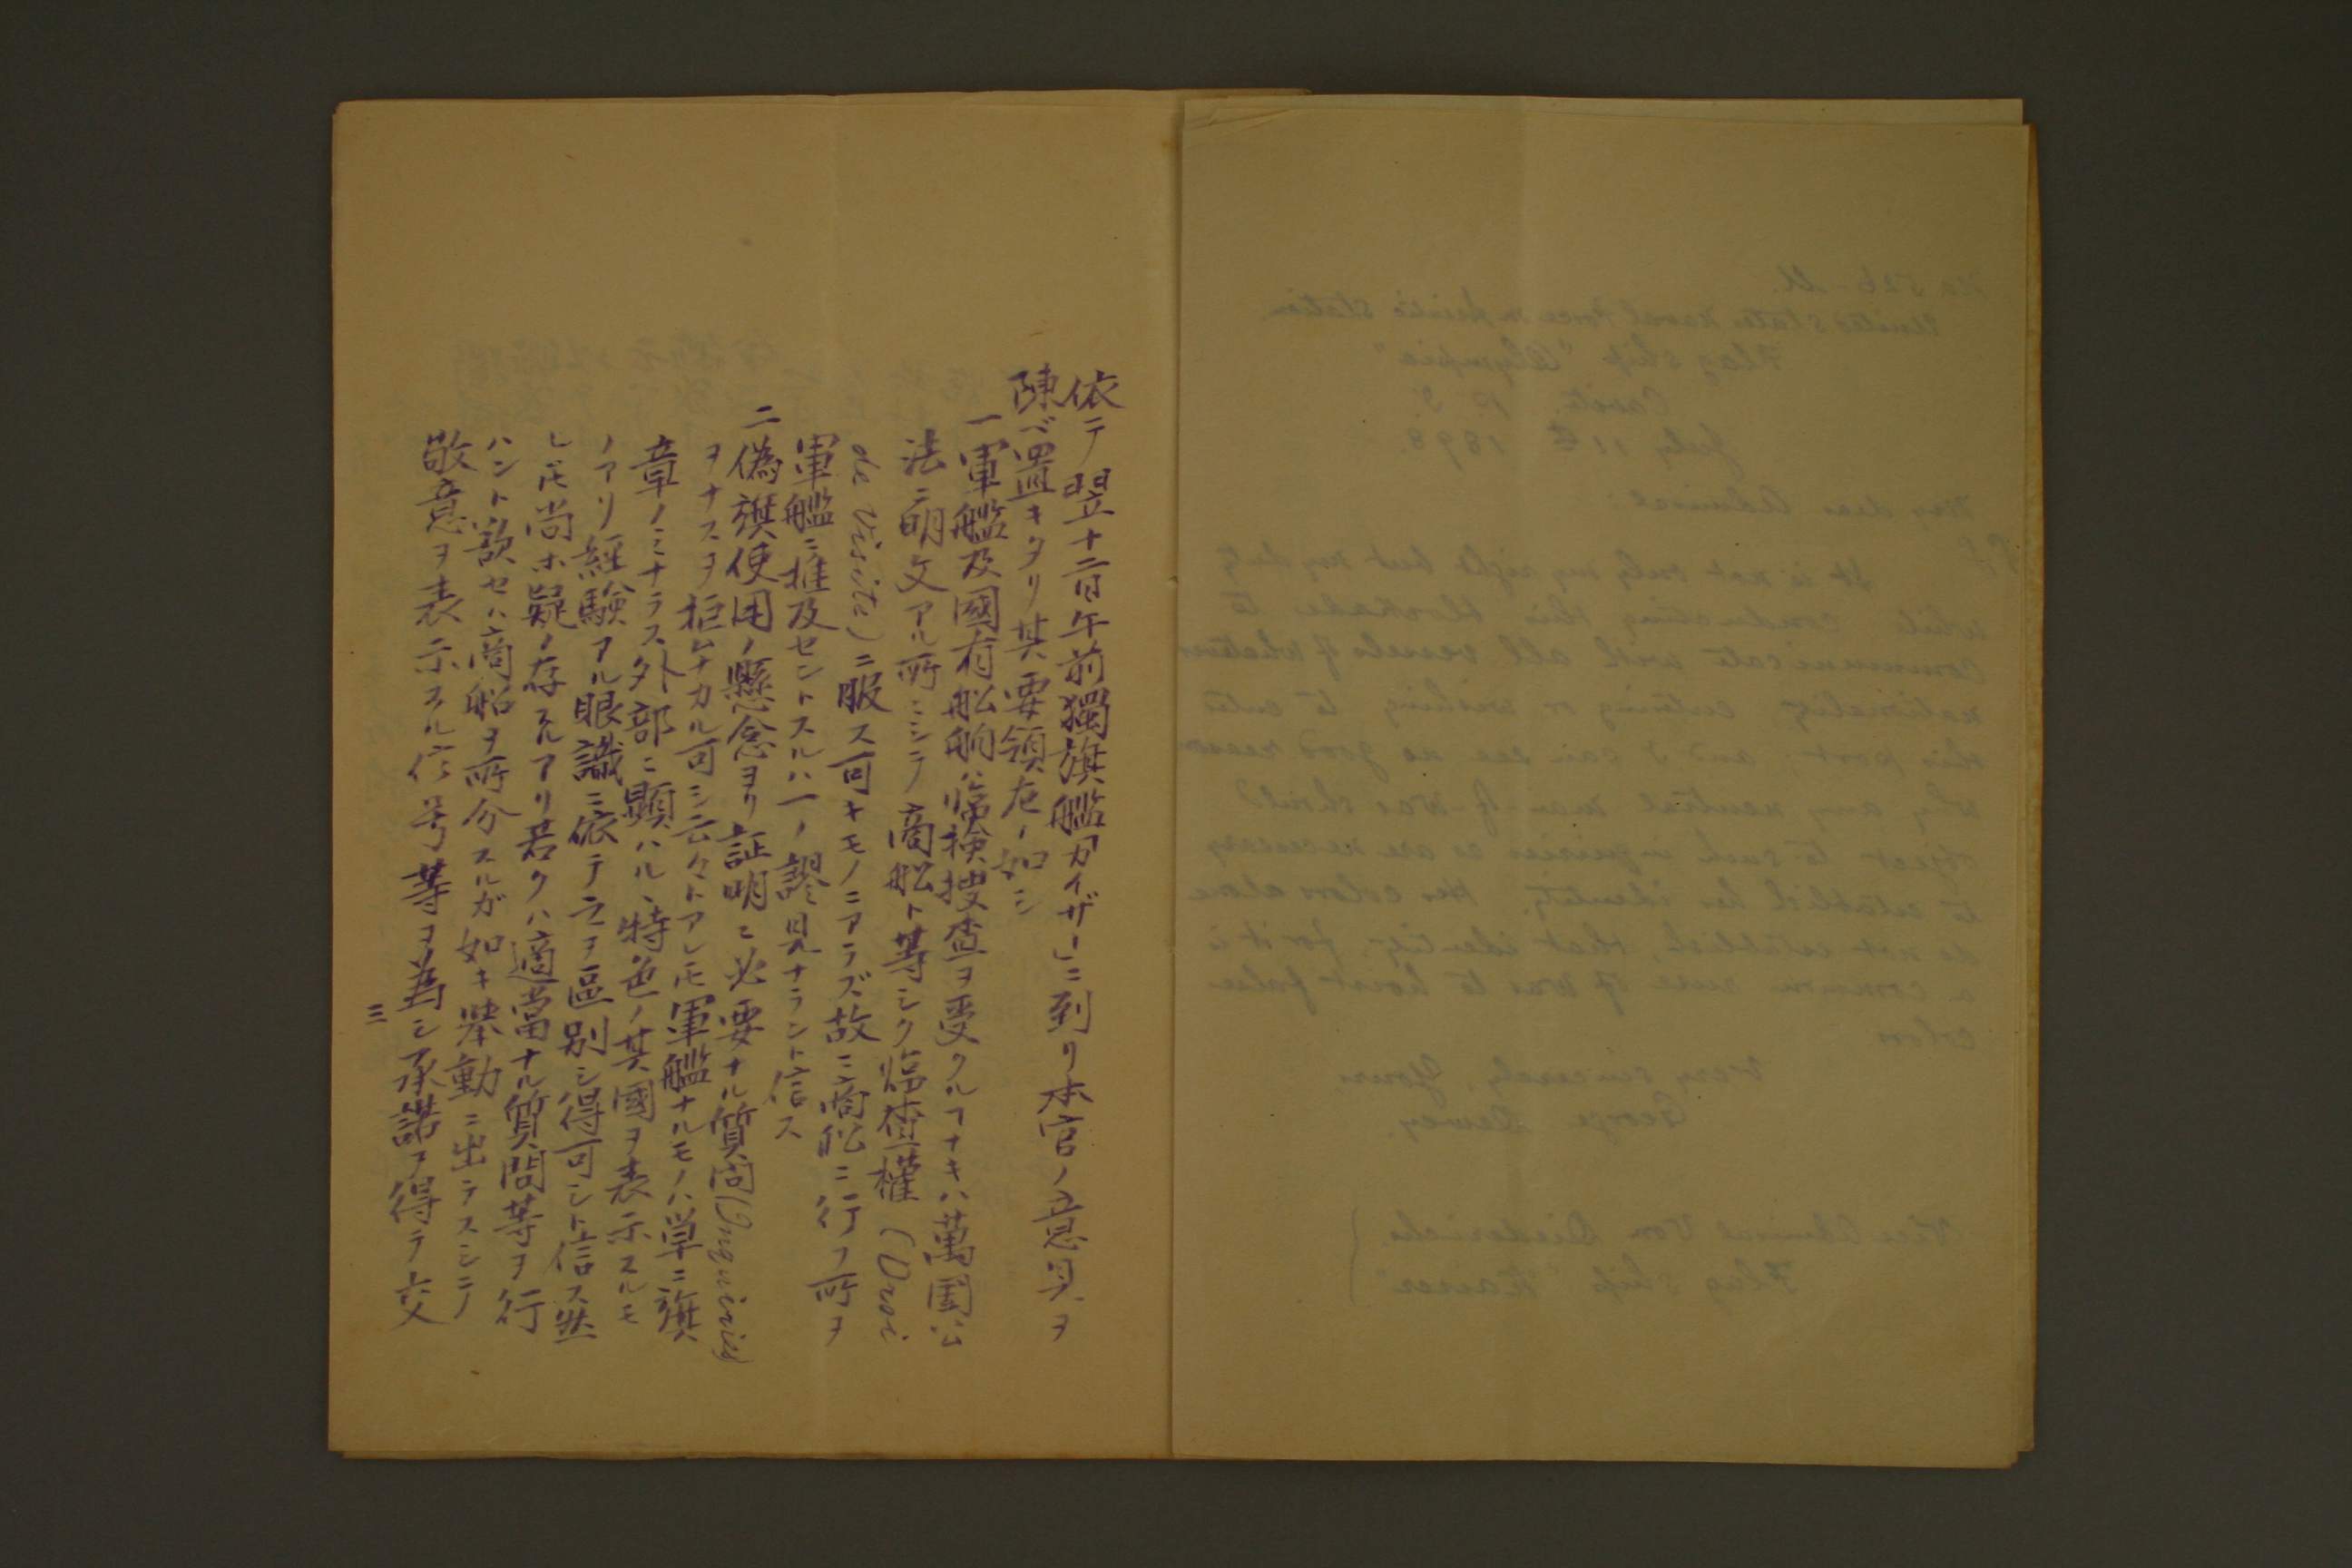 依テ翌十二日午前獨旗艦「カイザー」ニ到リ本官ノ意見ヲ
陳ベ置キタリ其要領左ノ如シ
一軍艦及國有船舶ハ臨検捜査ヲ受クルヿナキハ萬国公
法ニ明文アル所ニシテ商船ト等シク臨査權(Droit
de Visite)ニ服ス可キモノニアラズ故ニ商船ニ行フ所ヲ
軍艦ニ推及セントスルハ一ノ謬見ナラント信ス
二偽旗使用ノ懸念ヨリ証明ニ必要ナル質問(Inquiries)
ヲナスヲ拒ムナカル可シ云々トアレ𪜈軍艦ナルモノハ単ニ旗
章ノミナラス外部ニ顕ハルヽ特色ノ其國ヲ表示スルモ
ノアリ経験アル眼識ニ依テ之ヲ區別シ得可シト信ス然
レ𪜈尚ホ疑ノ存スルアリ若クハ適當ナル質問等ヲ行
ハント欲セハ商船ヲ所分スルガ如キ挙動ニ出テスシテ
敬意ヲ表示スル信号等ヲ為シ承諾ヲ得テ交
三
No 526-M.
United States Naval Force on Asiatic Station
Flag ship "Olympia"
Cavite, P. I.
July 11th 1898.
My dear Admiral:
It is not only my right but my duty
while conducting this blockade to
communicate with all vessels of whatever
nationality entering or wishing to enter
this port and I can see no good reason
why any neutral man-of-war should
object to such inquiries as are necessary
to establish her identity. Her colors alone
do not establish that identity, for it is
a common ruse of war to hoist false
colors
Very sincerely, Yours
George Dewey.
Vice Admiral Von Diederichs
Flag ship "Kaiser"